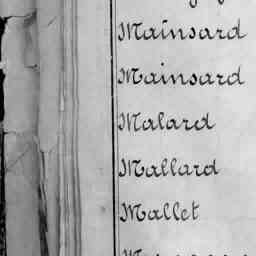 Mainsard
Mainsard
Malard
Mallard
Mallet